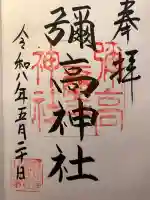 奉拝
彌高神社
令和八年五月二十日
彌高神社